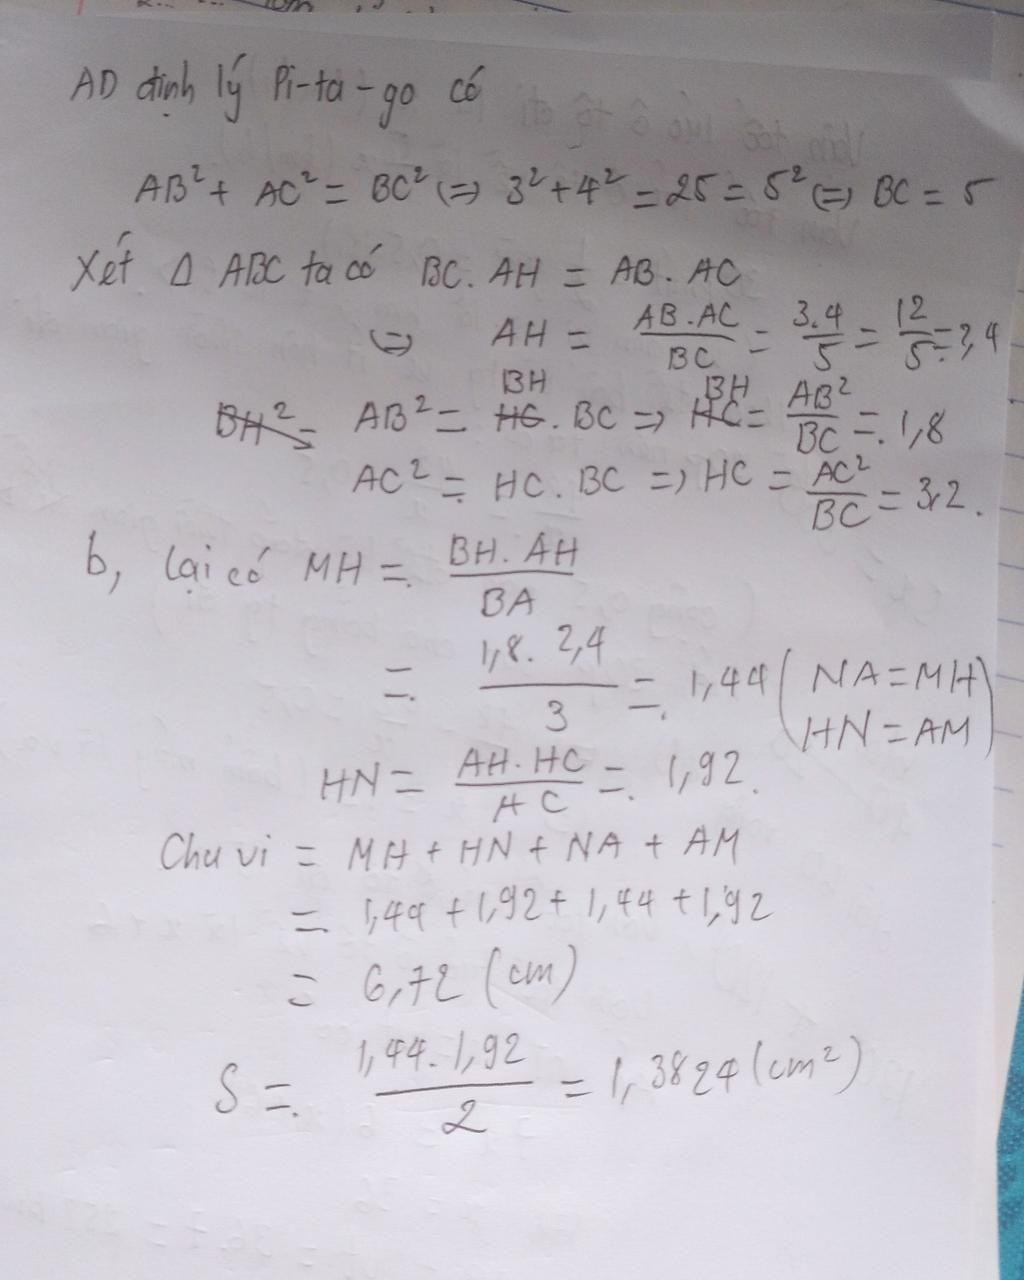 AD định lý Pi-ta-go có
AB² + AC² = BC² (=) 3² + 4² = 25 = 5² (=) BC = 5
Xét Δ ABC ta có BC. AH = AB. AC
(=) AH = AB.AC / BC = 3.4 / 5 = 12 / 5 = 2,4
BH² = AB² = HC BH. BC => HC BH = AB² / BC = 1,8
AC² = HC. BC => HC = AC² / BC = 3,2.
b, lại có MH = BH. AH / BA
= 1,8. 2,4 / 3 = 1,44 ( NA = MH
HN = AM )
HN = AH. HC / AC = 1,92.
Chu vi = MH + HN + NA + AM
= 1,44 + 1,92 + 1,44 + 1,92
= 6,72 (cm)
S = 1,44. 1,92 / 2 = 1,3824 (cm²)